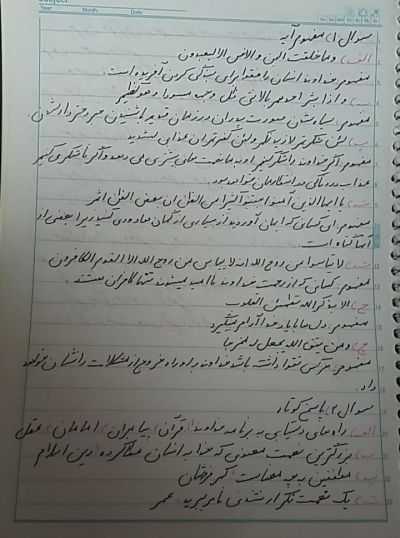 Subject:
Year: Month: Date:
سوال ۱) مفهوم آیه
الف) وما خلقت الجن والانس الا لیعبدون
مفهوم: خداوند انسان را فقط برای بندگی کردن آفریده است.
ب) و اذا بشر احدهم بالانثی ظل وجهه مسودا و هو کظیم
مفهوم: سیاه شدن صورت پدران در زمان قدیم از شنیدن خبر دختر دار شدن
پ) لئن شکرتم لازیدنکم ولئن کفرتم ان عذابی لشدید
مفهوم: اگر خداوند را شکر کنیم او به ما نعمت های بیشتری می دهد و اگر ناشکری کنیم
عذاب دردناکی در انتظارمان خواهد بود.
ت) یا ایها الذین آمنوا اجتنبوا کثیرا من الظن ان بعض الظن اثم
مفهوم: ای کسانی که ایمان آوردید از بسیاری از گمان ها دوری کنید زیرا بعضی از
آنها گناه است.
ث) لا تیاسوا من روح الله انه لا ییاس من روح الله الا القوم الکافرون
مفهوم: کسانی که از رحمت خداوند نا امید میشوند تنها کافران هستند.
ج) الا بذکر الله تطمئن القلوب
مفهوم: دل ها با یاد خدا آرام میگیرد
چ) ومن یتق الله یجعل له مخرجا
مفهوم: هرکس تقوا داشته باشد خداوند به او راه خروج از مشکلات را نشان خواهد
داد.
سوال ۲) پاسخ کوتاه
الف) راه های دستیابی به برنامه خداوند؟ قرآن، پیامبران، امامان، عقل
ب) بزرگترین نعمت معنوی که خدا به انسان عطا کرده؟ دین اسلام
پ) مطففین به چه معناست؟ کم فروشان
ت) یک نعمت تکرار نشدنی نام ببرید. عمر